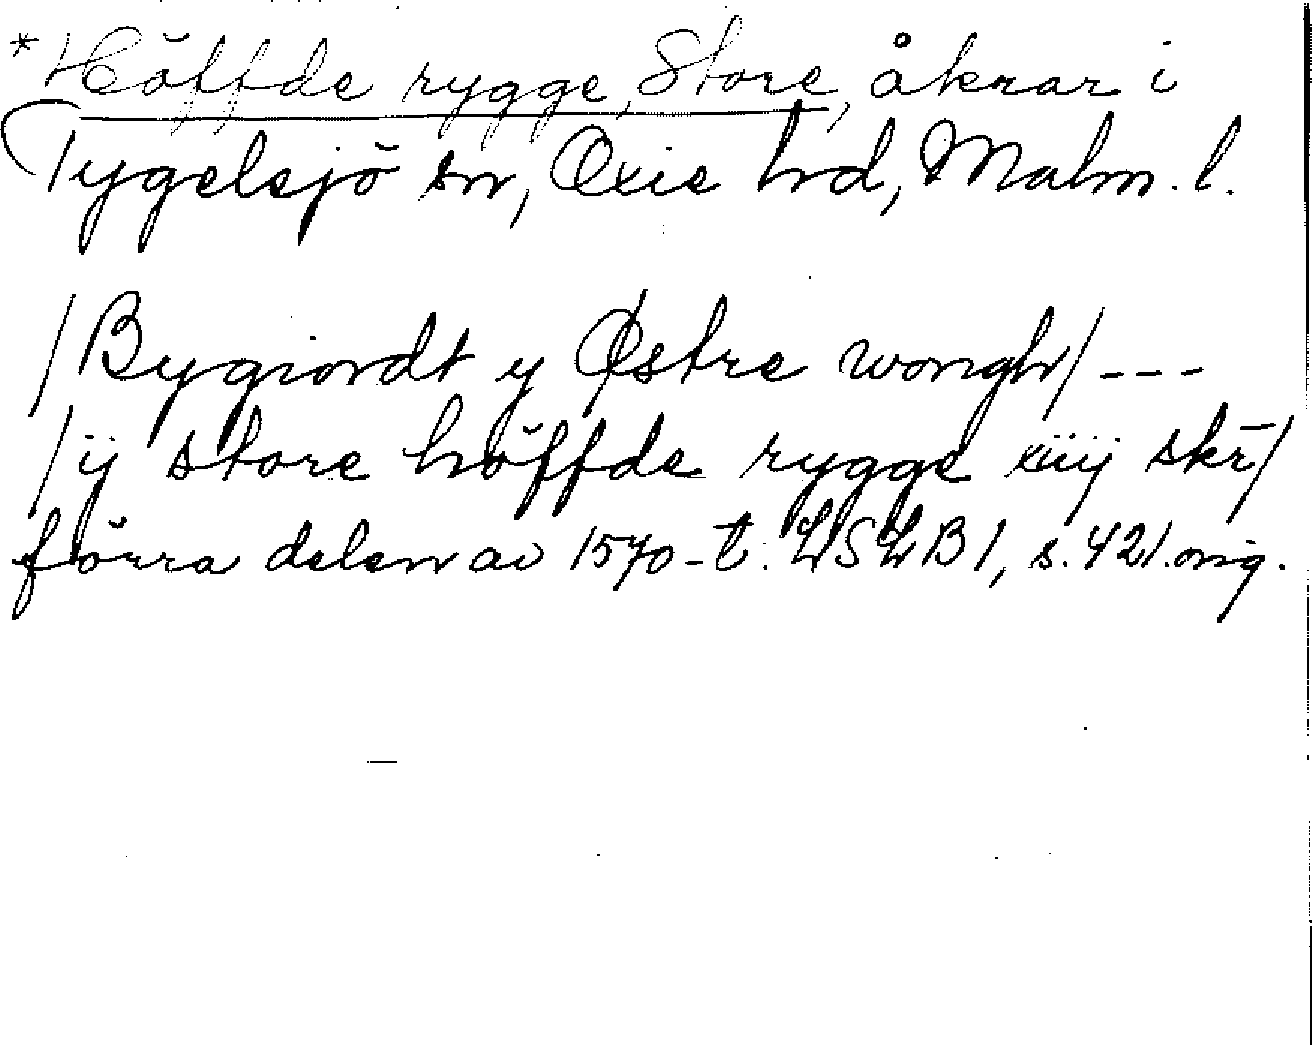 *Höffde rygge, Store, åkrar i
Tygelsjö sn, Oxie hd, Malm. l.
/Bygiordt y Østre wongh/ ---
/ij store höffde rygge xiiij skr̄/
förra delen av 1570-t. LSLB1, s. 421.orig.